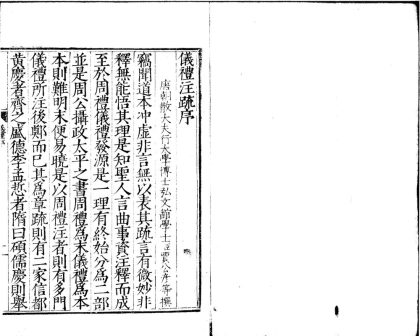 儀禮注疏序
唐朝散大夫行大學博士弘文館學士臣賈公彥等撰
竊聞道本沖虛非言無以表其疏言有微妙非
釋無能悟其理是知聖人言曲事資注釋而成
至於周禮儀禮發源是一理有終始分為二部
並是周公攝政太平之書周禮為末儀禮為本
本則難明末便易曉是以周禮注者則有多門
儀禮所注後鄭而已其為章疏則有二家信都
黃慶者齊之盛德李孟悊者隋曰碩儒慶則舉